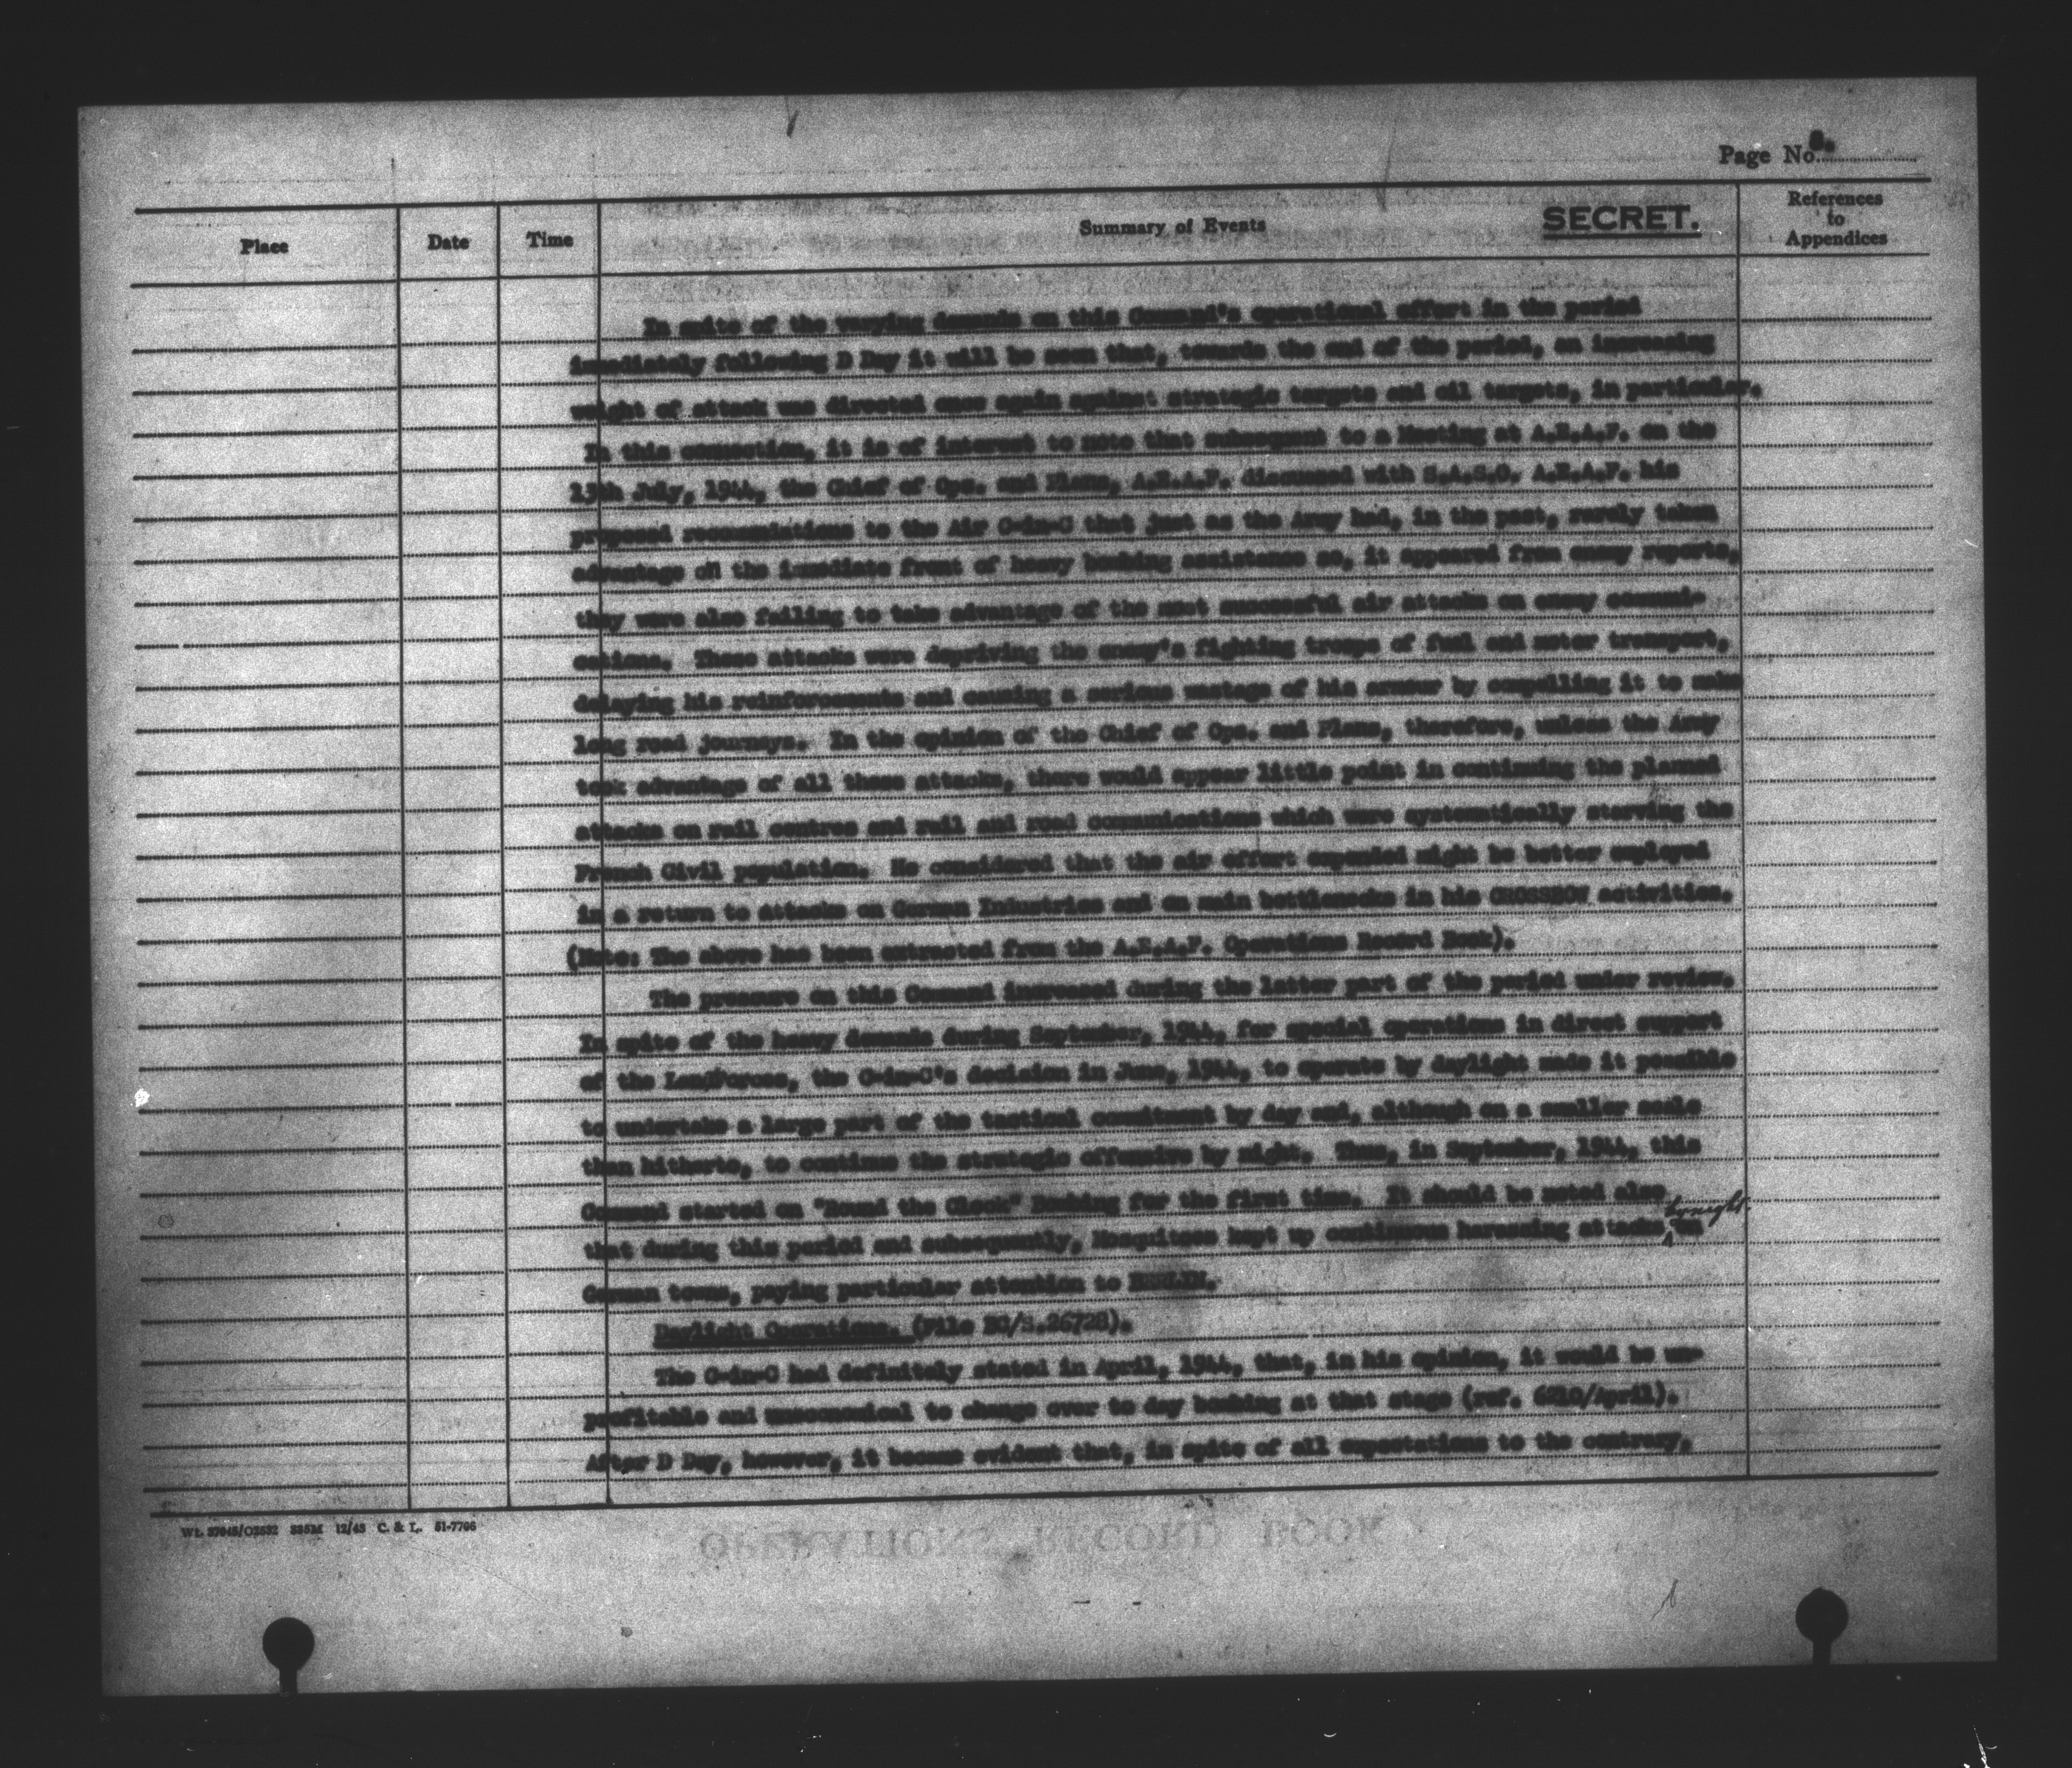 Page No. 8.
Place Date Time Summary of Events SECRET. References to Appendices
In spite of the varying demands on this Command's operational effort in the period
immediately following D Day it will be seen that, towards the end of the period, an increasing
weight of attack was directed once again against strategic targets and oil targets, in particular.
In this connection, it is of interest to note that subsequent to a Meeting at A.E.A.F. on the
13th July, 1944, the Chief of Ops. and Plans, A.E.A.F. discussed with S.A.S.O. A.E.A.F. his
proposed recommendations to the Air C-in-C that just as the Army had, in the past, rarely taken
advantage on the immediate front of heavy bombing assistance so, it appeared from enemy reports,
they were also failing to take advantage of the most successful air attacks on enemy communi-
cations. These attacks were depriving the enemy's fighting troops of fuel and motor transport,
delaying his reinforcements and causing a serious wastage of his armour by compelling it to make
long road journeys. In the opinion of the Chief of Ops. and Plans, therefore, unless the Army
took advantage of all these attacks, there would appear little point in continuing the planned
attacks on rail centres and rail and road communications which were systematically starving the
French Civil population. He considered that the air effort expended might be better employed
in a return to attacks on German Industries and on main bottlenecks in his CROSSBOW activities.
(Note: The above has been extracted from the A.E.A.F. Operations Record Book).
The pressure on this Command increased during the latter part of the period under review.
In spite of the heavy demands during September, 1944, for special operations in direct support
of the Land Forces, the C-in-C's decision in June, 1944, to operate by daylight made it possible
to undertake a large part of the tactical commitment by day and, although on a smaller scale
than hitherto, to continue the strategic offensive by night. Thus, in September, 1944, this
Command started on "Round the Clock" Bombing for the first time. It should be noted also
that during this period and subsequently, Mosquitoes kept up continuous harassing attacks by night on
German towns, paying particular attention to BERLIN.
Daylight Operations. (File BC/S.26728).
The C-in-C had definitely stated in April, 1944, that, in his opinion, it would be un-
profitable and uneconomical to change over to day bombing at that stage (ref. 6210/April).
After D Day, however, it became evident that, in spite of all expectations to the contrary,
Wt. 37045/O2632 325M 12/43 C. & L. 51-7706
OPERATIONS RECORD BOOK